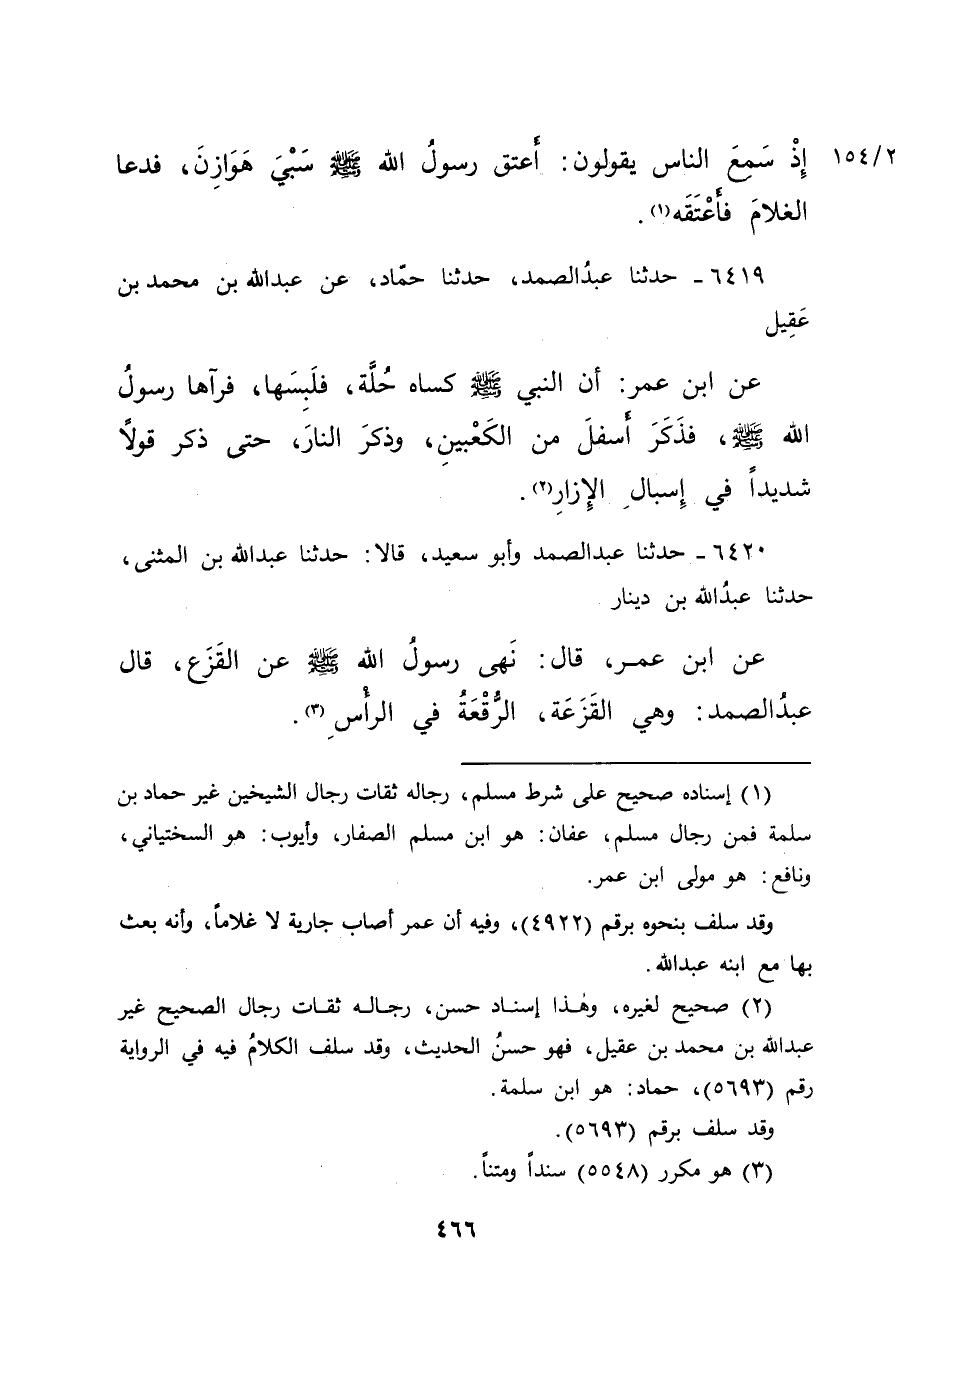 ١٥٤/٢ إِذْ سَمِعَ الناس يقولون: أَعتق رسولُ الله ﷺ سَبْيَ هَوَازِنَ، فدعا
الغلامَ فأَعْتَقَه(١).
٦٤١٩ ـ حدثنا عبدُالصمد، حدثنا حمّاد، عن عبدالله بن محمد بن
عَقِيل
عن ابن عمر: أن النبي ﷺ كساه حُلَّة، فلَبِسَها، فرآها رسولُ
الله ﷺ، فذَكَرَ أَسفلَ من الكَعْبينِ، وذكرَ النارَ، حتى ذكر قولاً
شديداً في إِسبالِ الإِزارِ(٢).
٦٤٢٠ ـ حدثنا عبدالصمد وأبو سعيد، قالا: حدثنا عبدالله بن المثنى،
حدثنا عبدُالله بن دينار
عن ابن عمر، قال: نَهى رسولُ الله ﷺ عن القَزَع، قال
عبدُالصمد: وهي القَزَعَة، الرُّقْعَةُ في الرأْسِ(٣).
(١) إسناده صحيح على شرط مسلم، رجاله ثقات رجال الشيخين غير حماد بن
سلمة فمن رجال مسلم، عفان: هو ابن مسلم الصفار، وأيوب: هو السختياني،
ونافع: هو مولى ابن عمر.
وقد سلف بنحوه برقم (٤٩٢٢)، وفيه أن عمر أصاب جارية لا غلاماً، وأنه بعث
بها مع ابنه عبدالله.
(٢) صحيح لغيره، وهٰذا إسناد حسن، رجاله ثقات رجال الصحيح غير
عبدالله بن محمد بن عقيل، فهو حسنُ الحديث، وقد سلف الكلامُ فيه في الرواية
رقم (٥٦٩٣)، حماد: هو ابن سلمة.
وقد سلف برقم (٥٦٩٣).
(٣) هو مكرر (٥٥٤٨) سنداً ومتناً.
٤٦٦